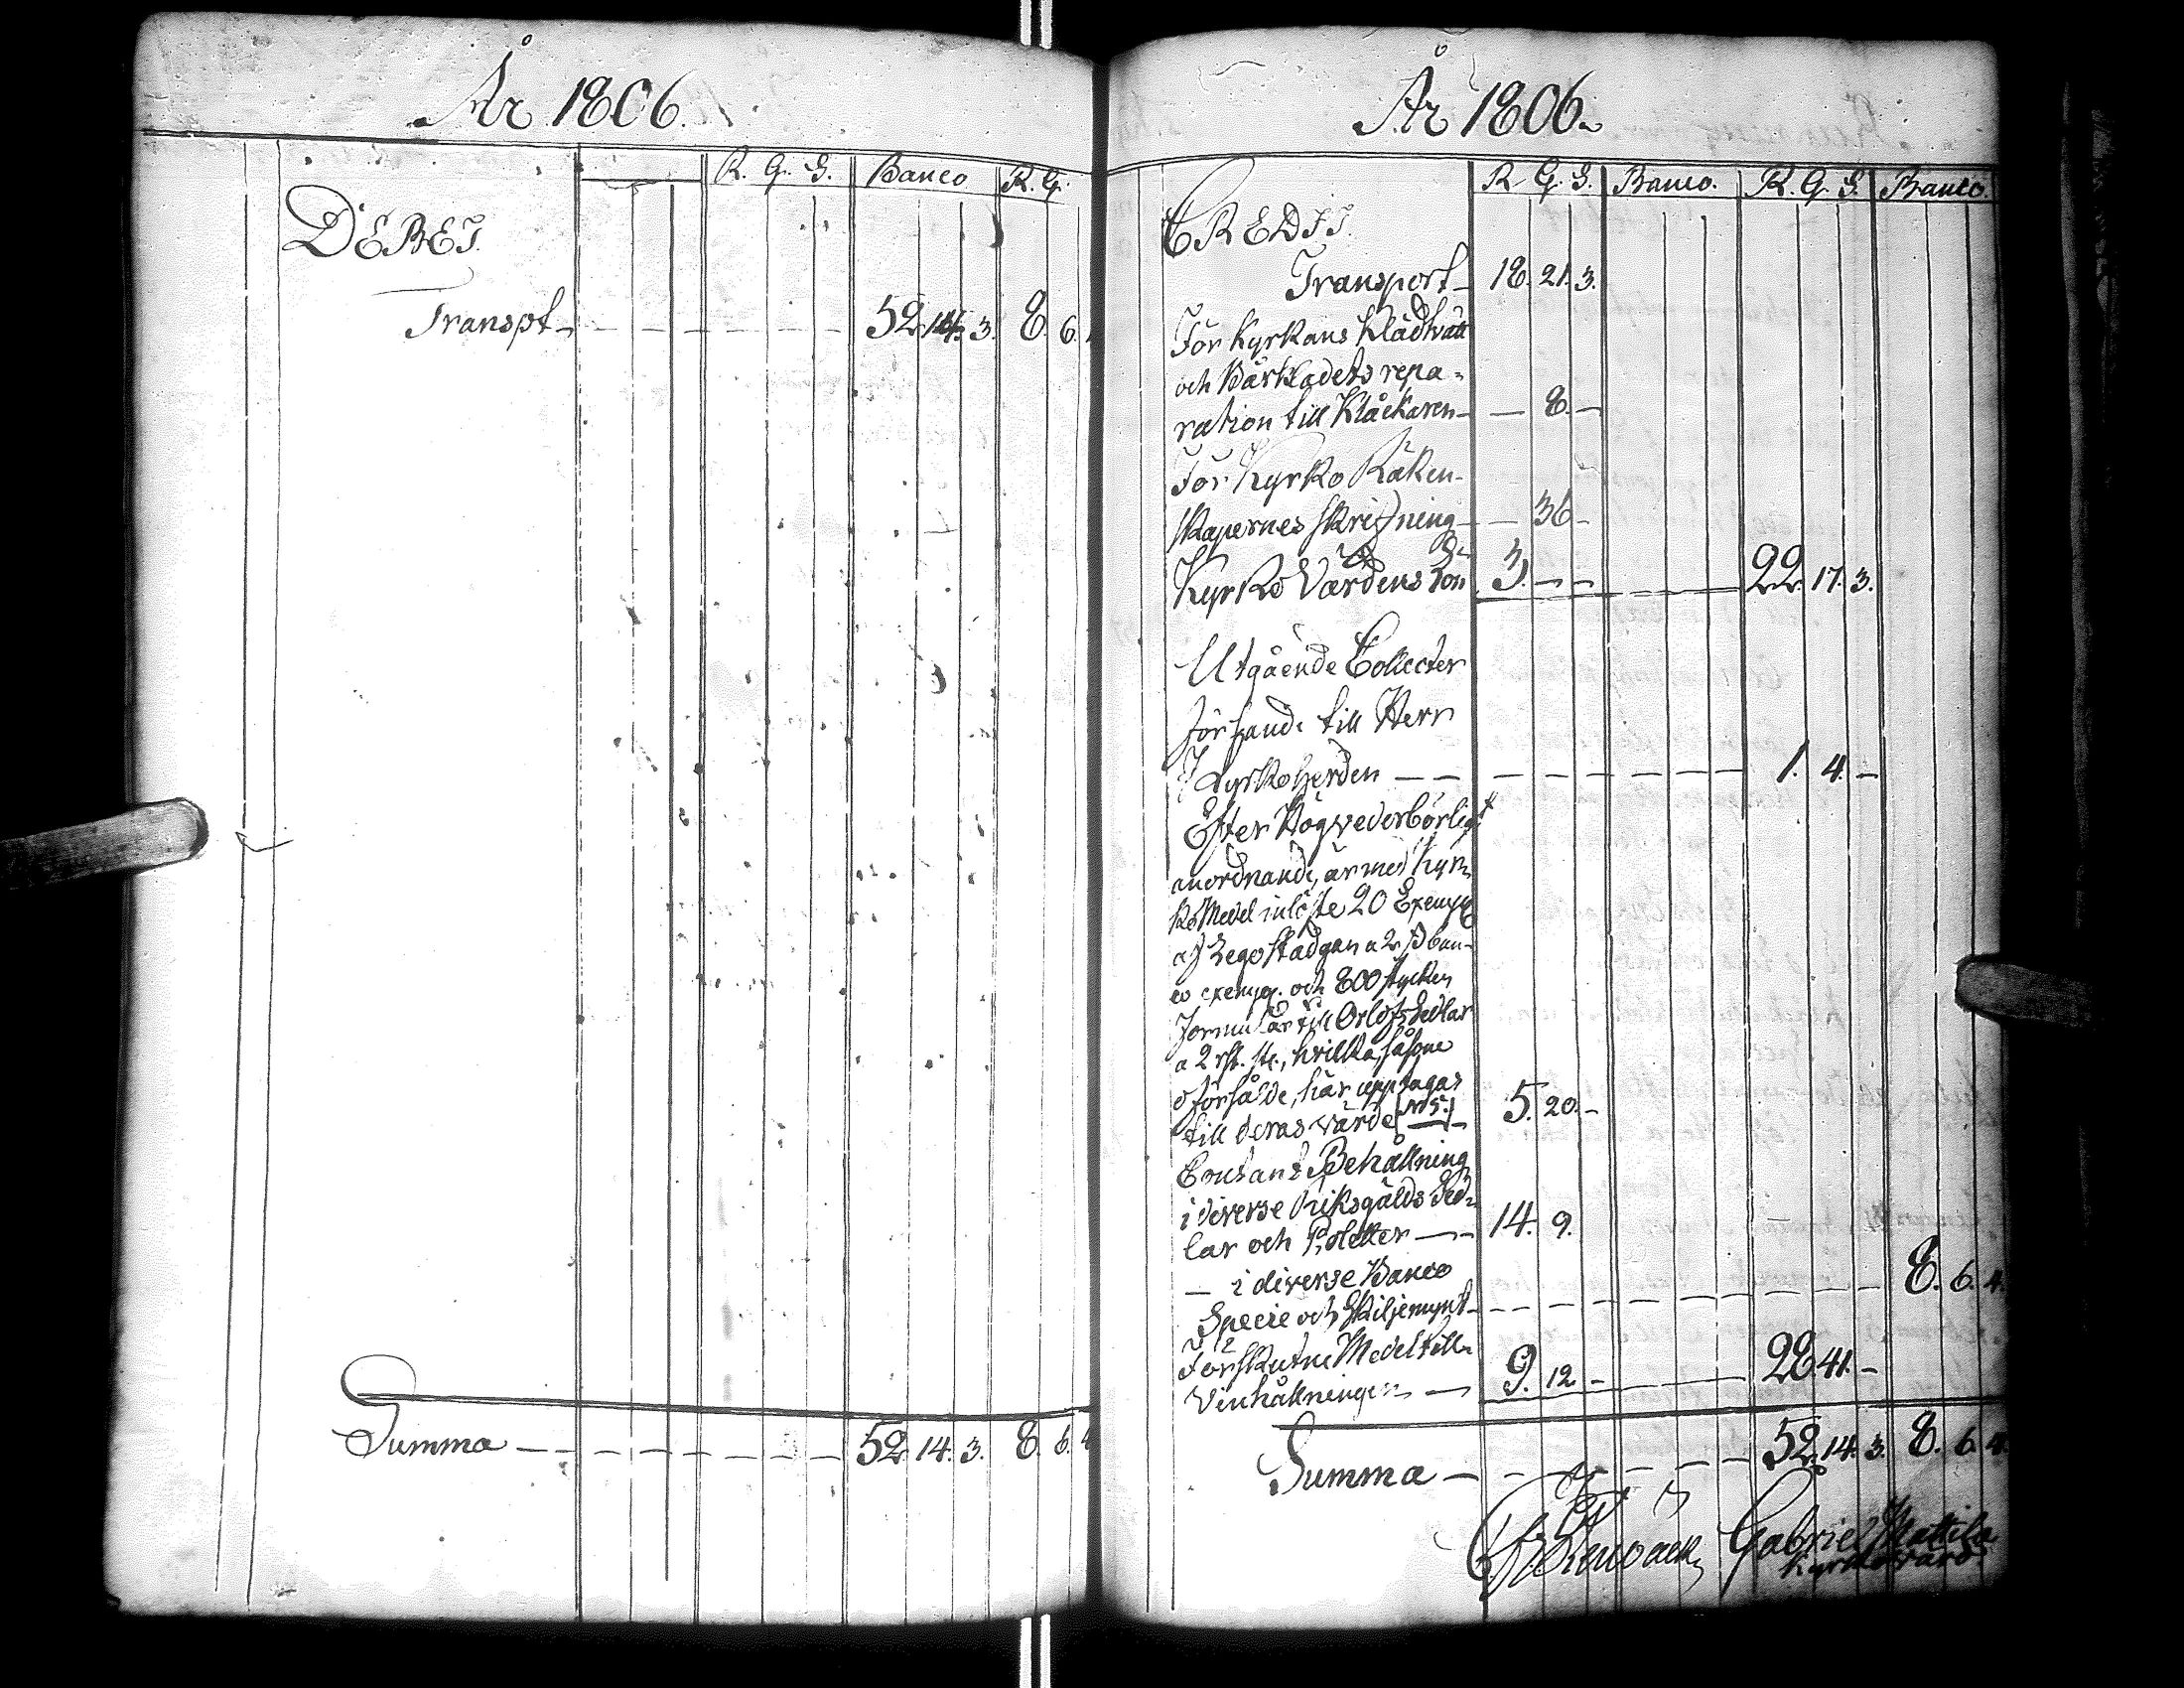 År 1806.
R. G. S. Banco R. G.
DEBET.
Transpt 52. 14. 3. 8. 6.
Summa 52. 14. 3. 8. 6. 4
År 1806.
R. G. S. Banco. R. G. S. Banco.
CREDIT.
Transport 18. 21. 3.
För Kyrkans Klädtvätt
och Bårklädets repa-
ration till Klåckaren — 8. —
För Kyrko Räken-
skapernes skrifning — 36 —
Kyrko Värdens Lön 3. — — 22. 17. 3.
Utgående Collecter
försände till Herr
Kyrkoherden 1. 4. —
Efter Högvederbörligt
anordnande, är med Kyr-
ko Medel inlöste 20 Exempl
af Legostadgan a 2 ß ban-
co exempl. och 800 stycken
Formulär till Orlofs Sedlar
a 2 rst. st., hvilka såsom
oförsålde, här upptagas
till deras värde N 5. 5. 20. —
Contant Behållning
i diverse Riksgälds Sed-
lar och Poletter — 14. 9.
— i diverse Banco
Specie och Skiljemynt 8. 6. 4.
Förskutne Medel till
Vinhållningen — 9. 12 — 28. 41. —
Summa — 52. 14. 3. 8. 6. 4.
Gabriel Mattila
Kyrkovärd